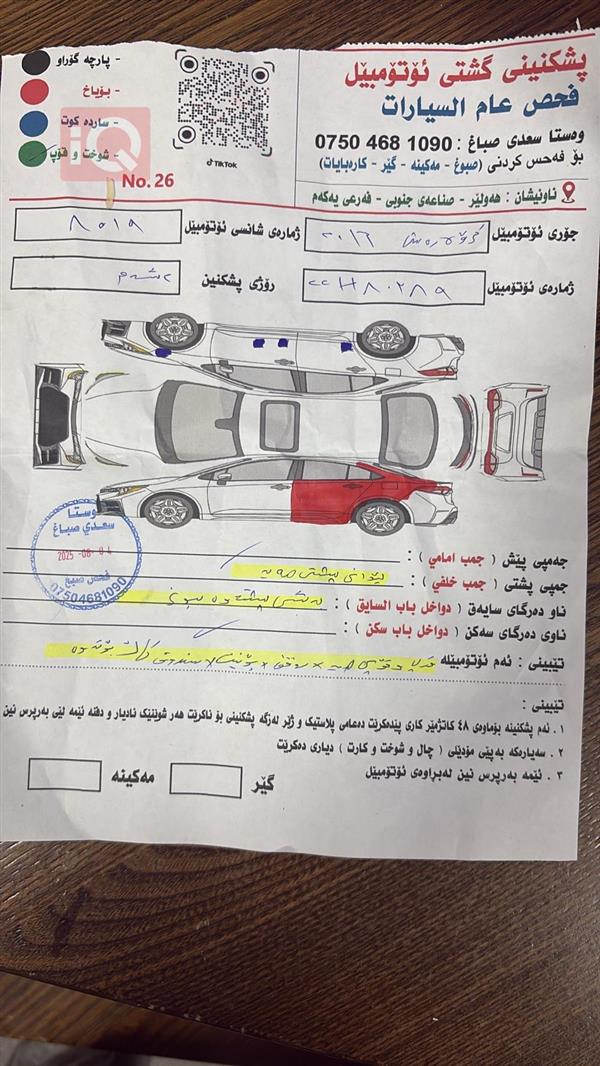 پشکنینی گشتی ئۆتۆمبێل
فحص عام السيارات
وەستا سعدی صباغ : 1090 468 0750
بۆ فەحس کردنی (صبوغ - مەکینە - گێر - کارەبایات)
ناونیشان : هەولێر - صناعەی جنوبی - فەرعی یەکەم
- پارچە گۆراو
- بۆیاخ
- ساردە کوت
- شوخت و قۆپ
iQ
TikTok
No. 26
جۆری ئۆتۆمبێل ٢٠١٦
ژمارەی شانسی ئۆتۆمبێل ٨٠١٩
ژمارەی ئۆتۆمبێل ٢٢H٨٠٢٨٩
رۆژی پشکنین
وستا
سعدي صباغ
2025 -08- 04
فحص صبغ
07504681090
جەمپی پێش ( جمب امامي ) :
جمپی پشتی ( جمب خلفي ) :
ناو دەرگای سایەق ( دواخل باب السايق ) :
ناوی دەرگای سەکن ( دواخل باب سكن ) :
تێبینی : ئەم ئۆتۆمبێلە
تێبینی :
١ . ئەم پشکنینە بۆماوەی ٤٨ کاتژمێر کاری پێدەکرێت دەعامی پلاستیک و ژێر لەزگە پشکنینی بۆ ناکرێت هەر شوێنێک نادیار و دفنە ئێمە لێی بەرپرس نین
٢ . سەیارەکە بەپێی مۆدێلی ( چال و شوخت و کارت ) دیاری دەکرێت
٣ . ئێمە بەرپرس نین لەبراوەی ئۆتۆمبێل
گێر
مەکینە